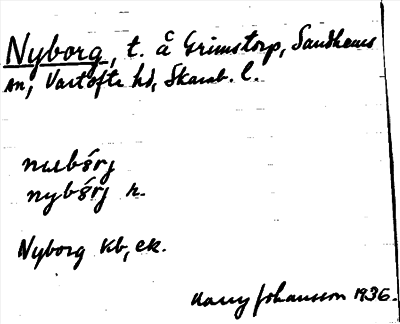 Nyborg, t. å Grimstorp, Sandhems
sn, Vartofte hd, Skarab. l.
nuubǿrj
nybǿrj n.
Nyborg kb, ek.
Harry Johansson 1936.